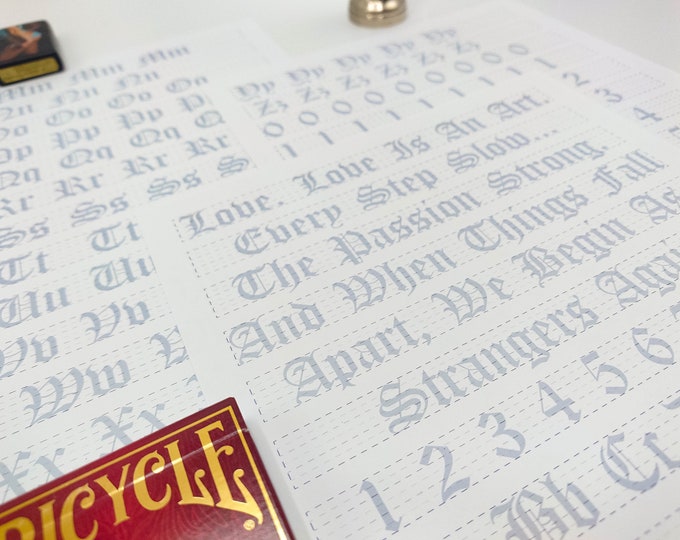 Mm Mm Mm
Nn Nn Nn
Oo Oo Oo Oo
Pp Pp Pp P
Qq Qq Qq Q
Rr Rr Rr R
Ss Ss Ss S
Ss
Tt Tt
Tt
Uu Uu
Uu
Vv Vv
Vv
Ww Ww
Xx Xx
Xx
Yy Yy Yy Yy Yy
Zz Zz Zz Zz Zz
0 0 0 0 0 0 0 0
1 1 1 1 1 1 1 1
2
3
4
Love. Love Is An Art.
Every Step Slow...
The Passion Strong.
And When Things Fall
Apart, We Begin As
Strangers Again
1 2 3 4 5 6 7
Bb Cc
BICYCLE